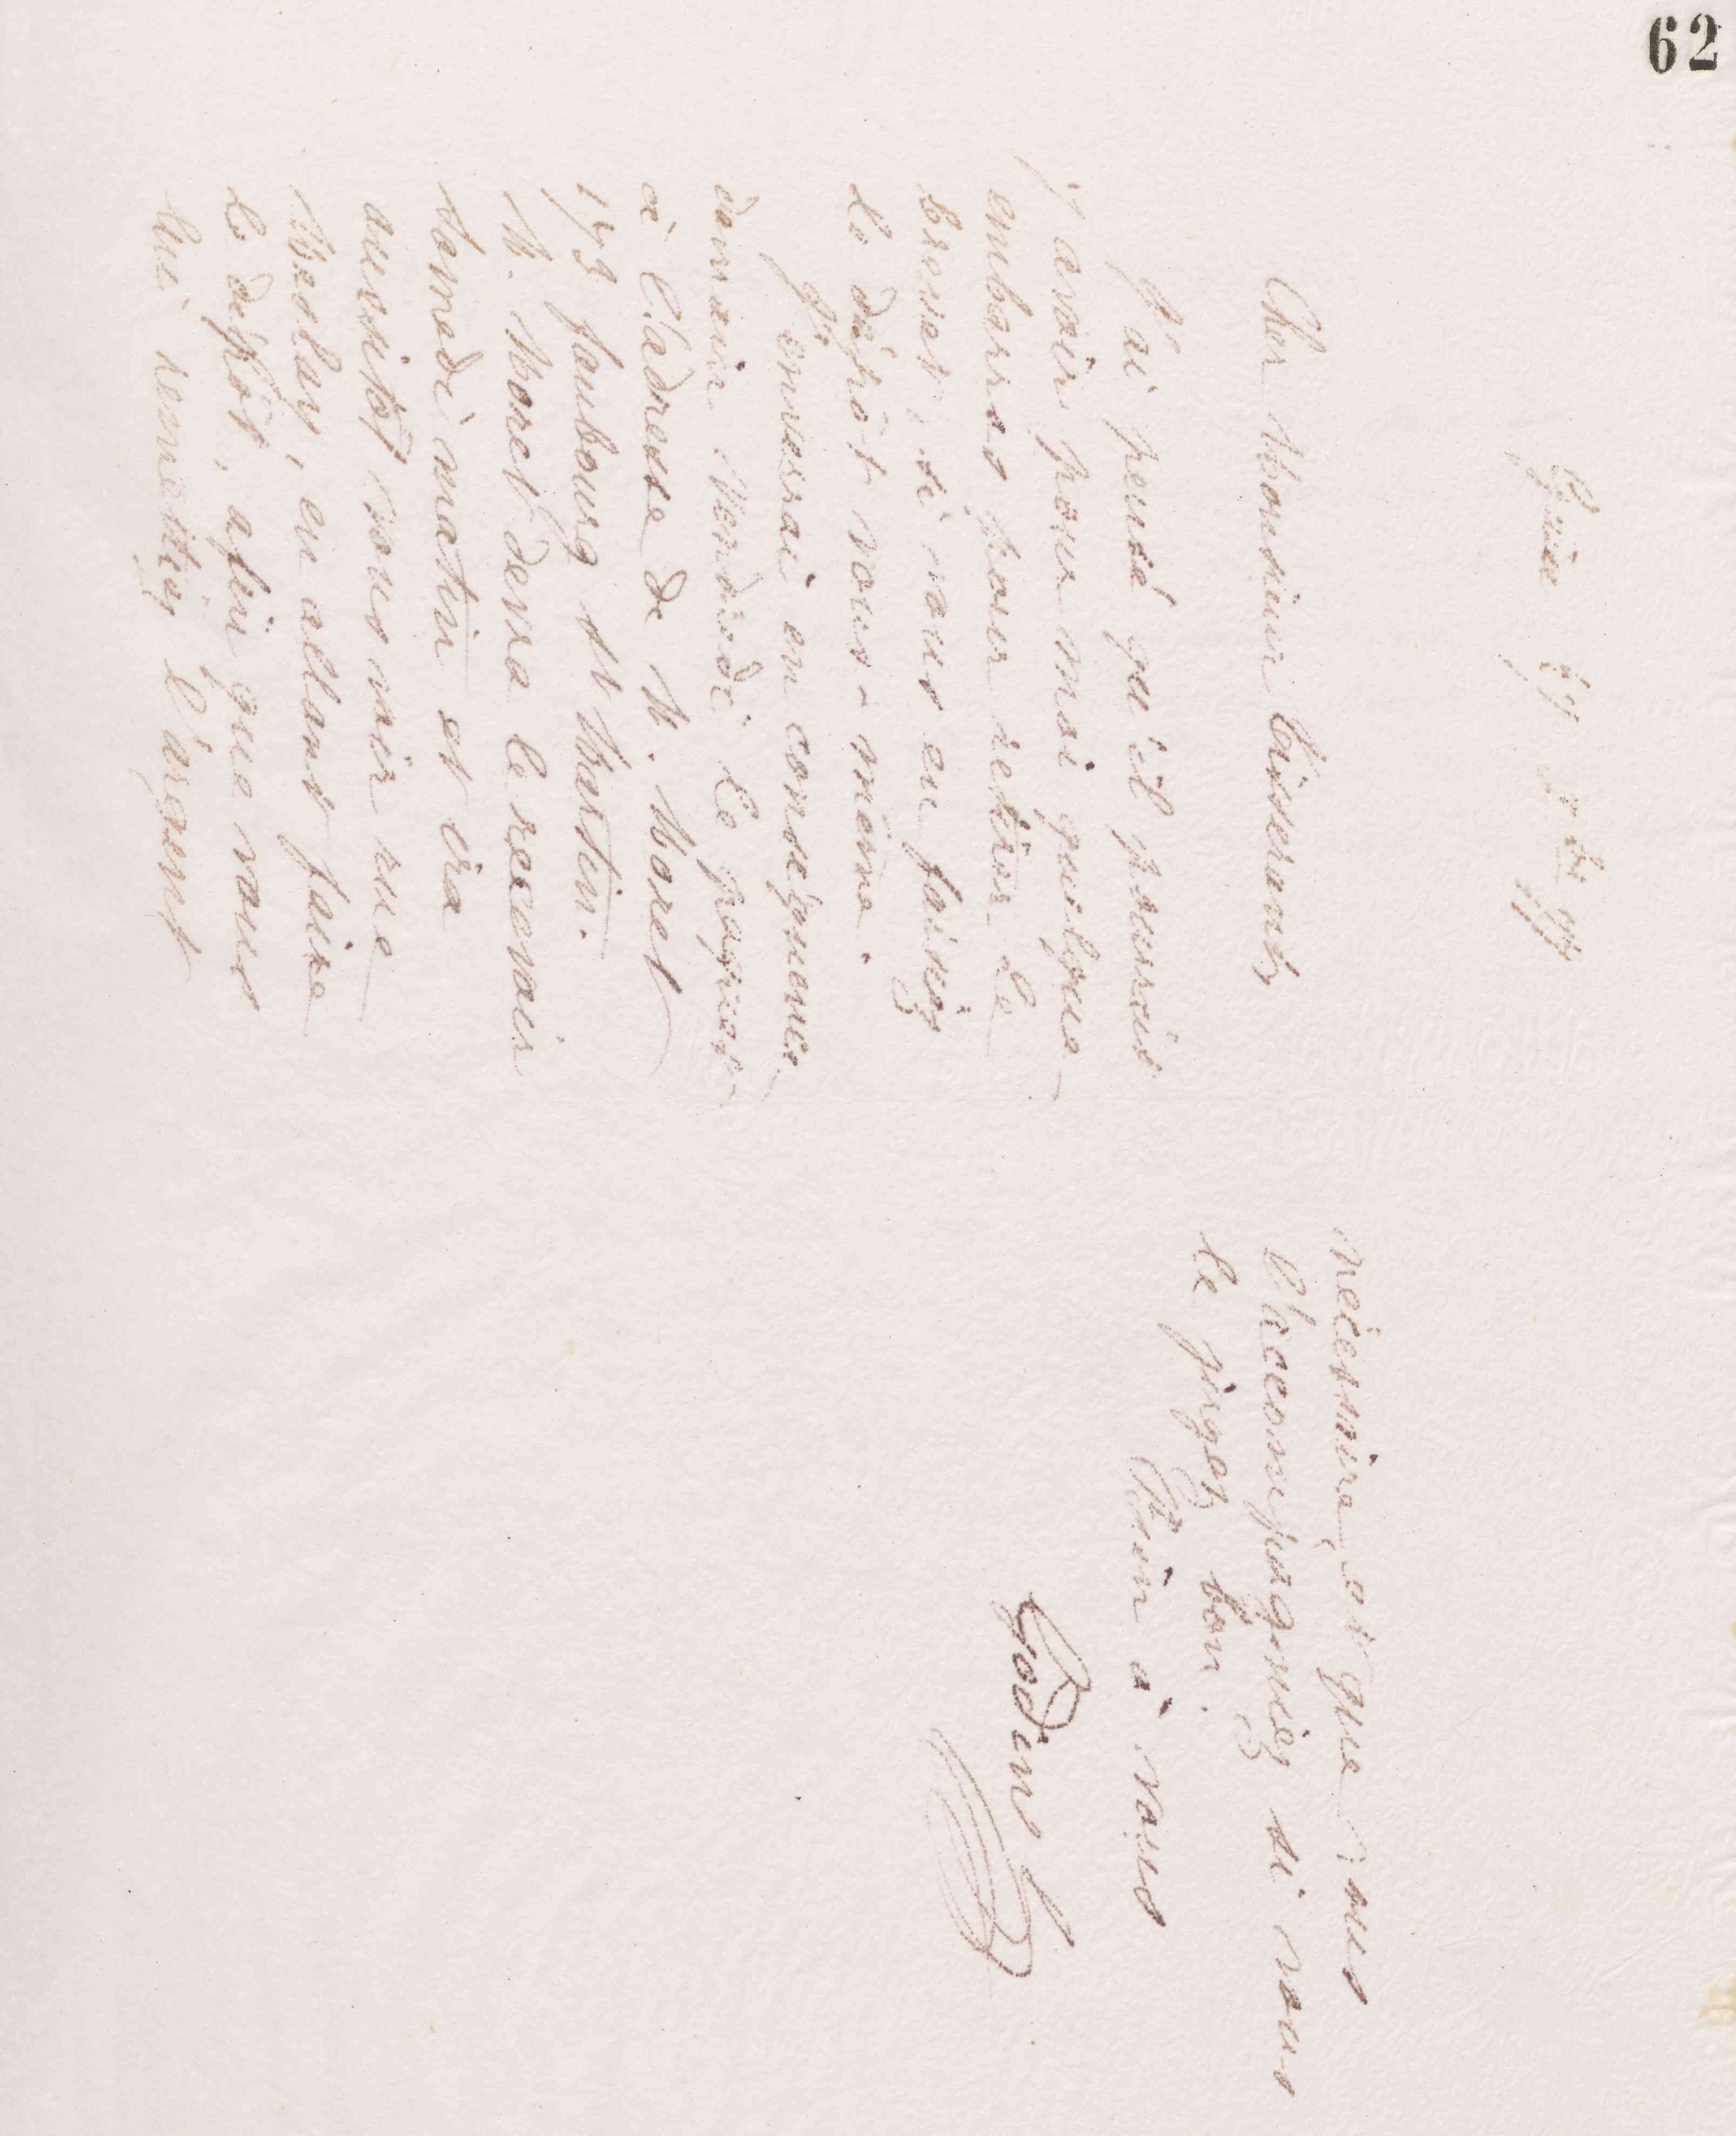 62
Guise
Cher Monsieur Tisserant,
J'ai pensé qu'il pourrait
y avoir pour moi quelque
embarras pour retirer le
brevet, si vous en faisiez
le dépôt vous-même.
J'enverrai en conséquence
demain Vendredi le paquet
à l'adresse de M. Moret
173 faubourg St Martin.
M. Moret devra le recevoir
Samedi matin et ira
aussitôt vous voir rue
Meslay, en allant faire
le dépôt, afin que vous
lui remettiez l'argent
nécessaire, et que vous
l'accompagniez si vous
le jugez bon.
Bien à vous
Godin